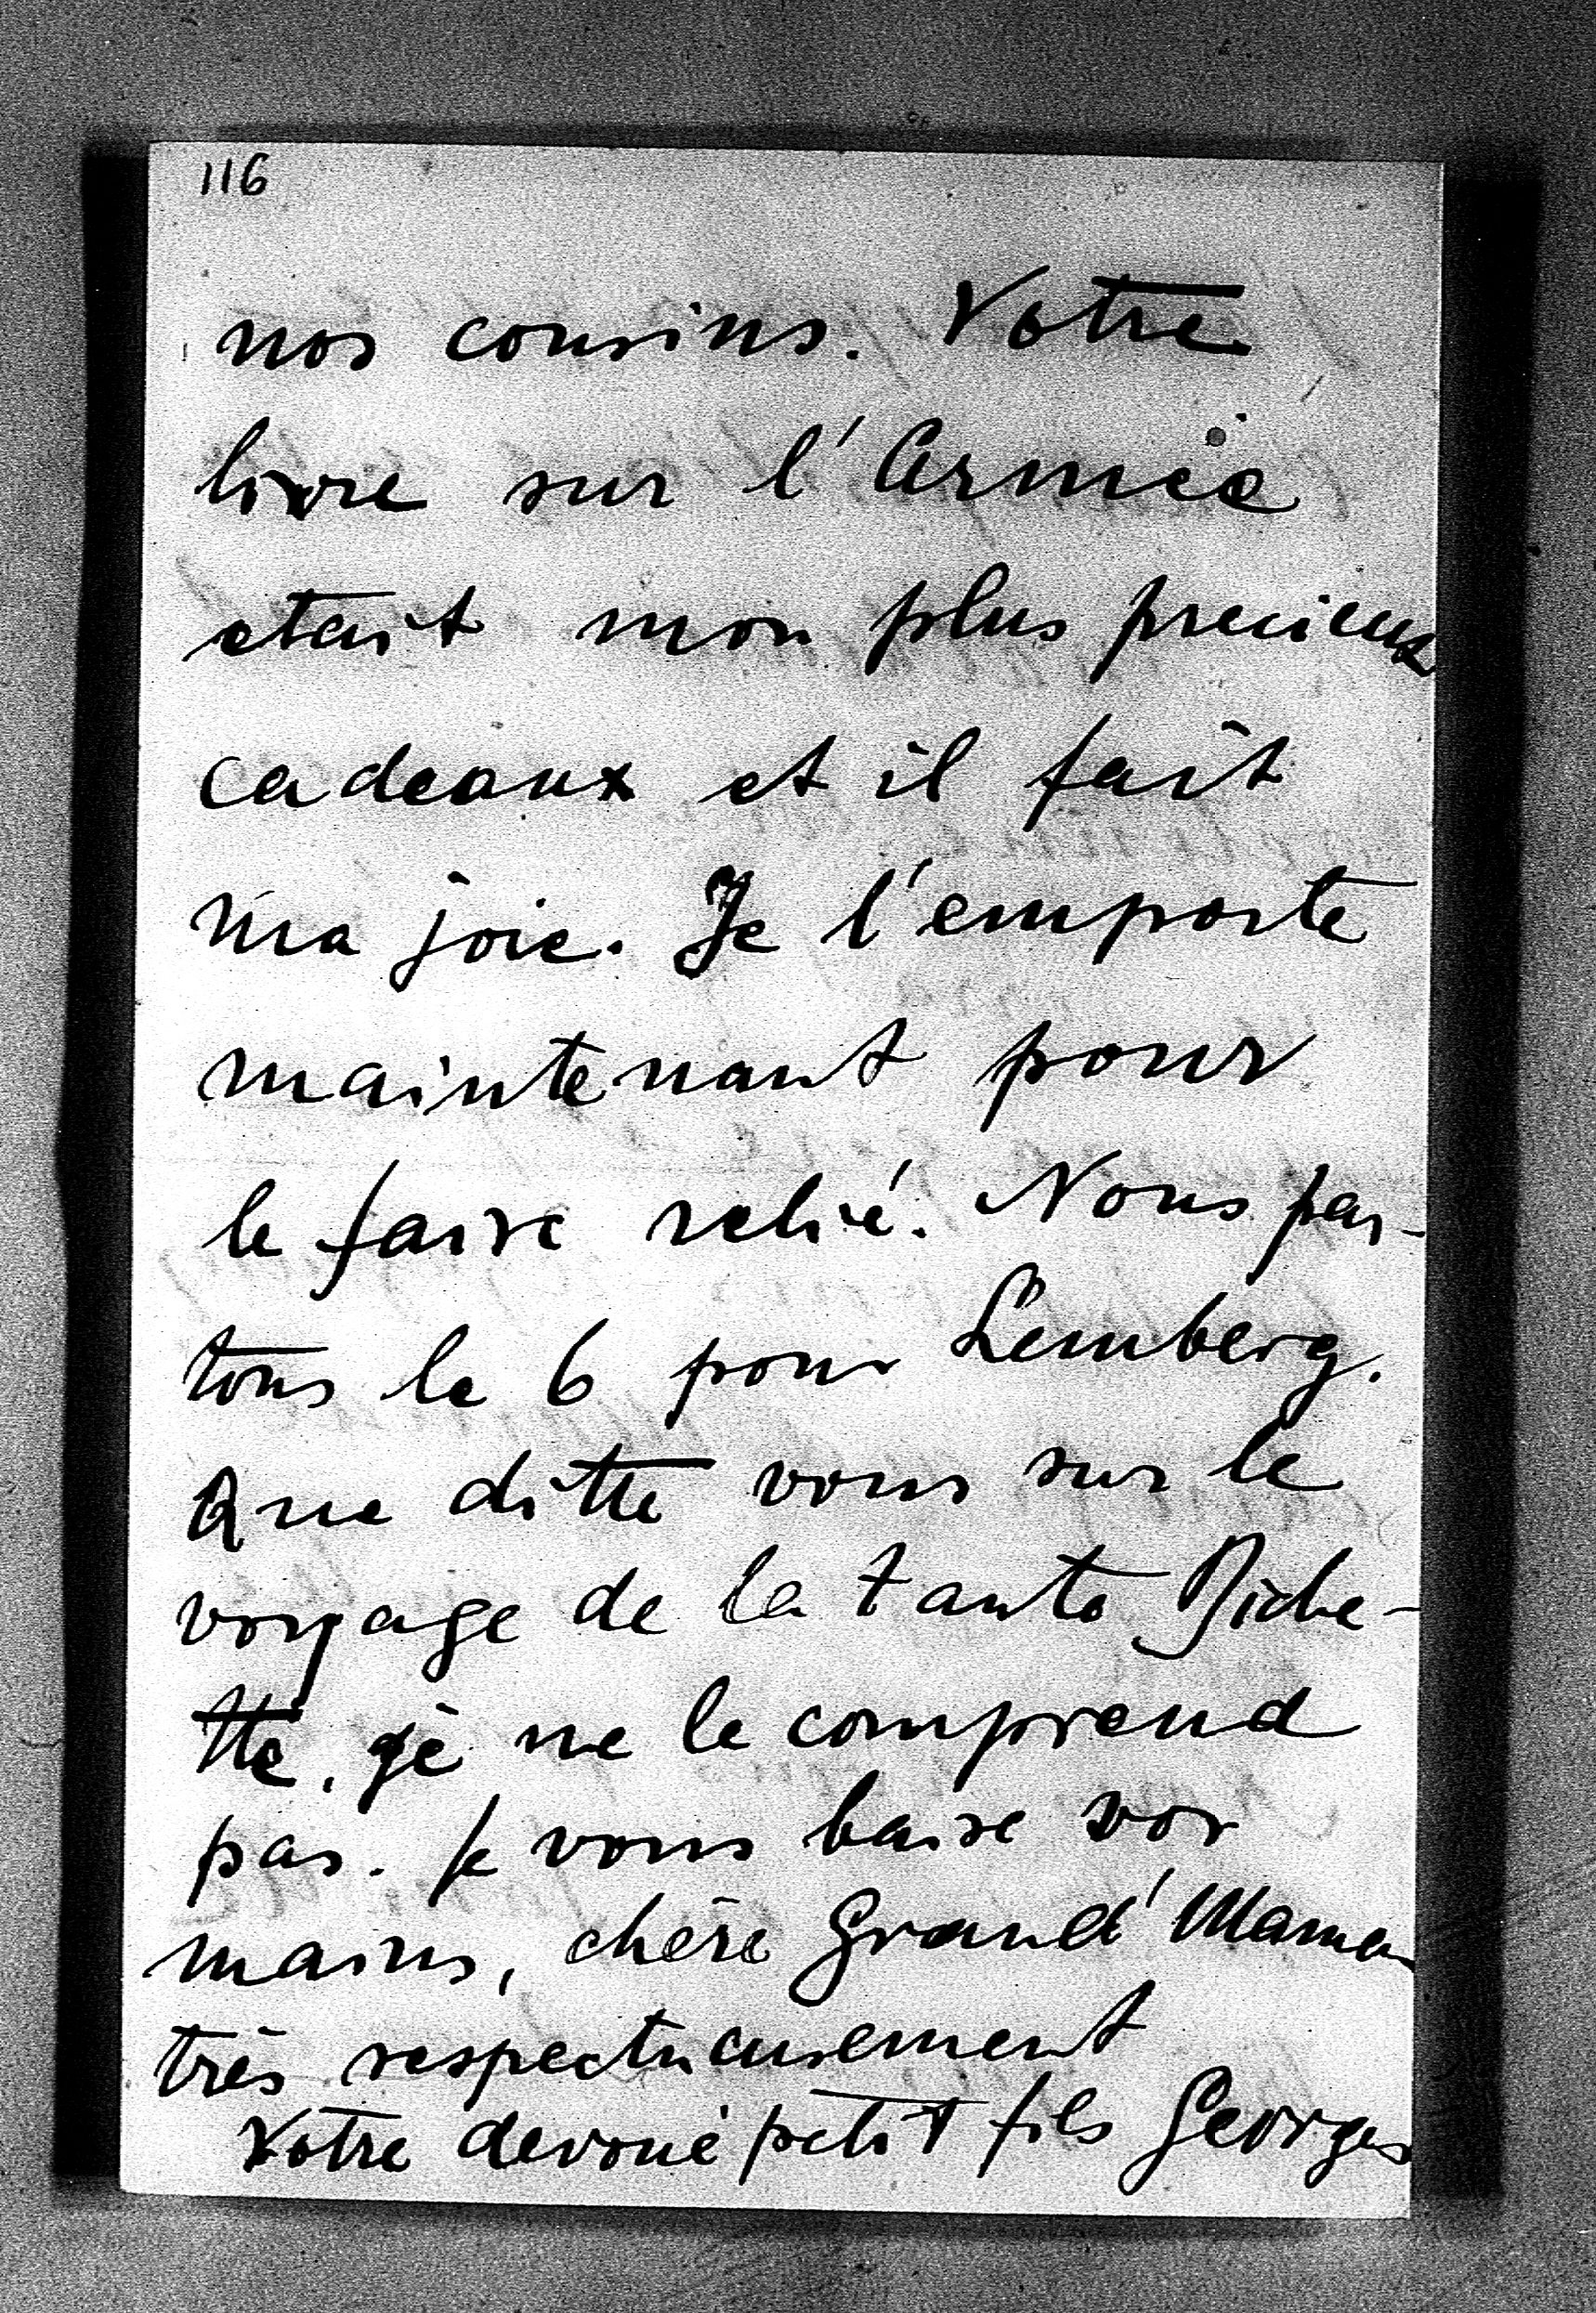 116
nos cousins. Votre
livre sur l'Armée
etait mon plus precieux
cadeaux et il fait
ma joie. Je l'emporte
maintenant pour
le faire relié. Nous par-
tons le 6 pour Lemberg.
Que ditte vous sur le
voyage de la tante Biche-
tte, gè ne le comprend
pas. Je vous baise vos
mains, chère Grand'Maman
très respectueusement
Votre devoué petit fils Georges